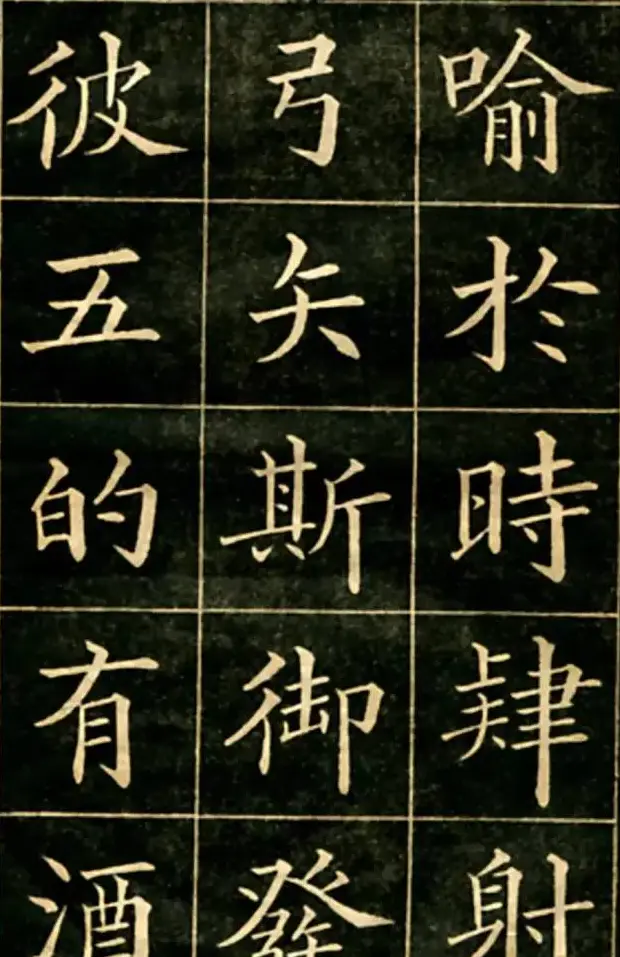 喻於時肆射
弓矢斯御發
彼五的有酒